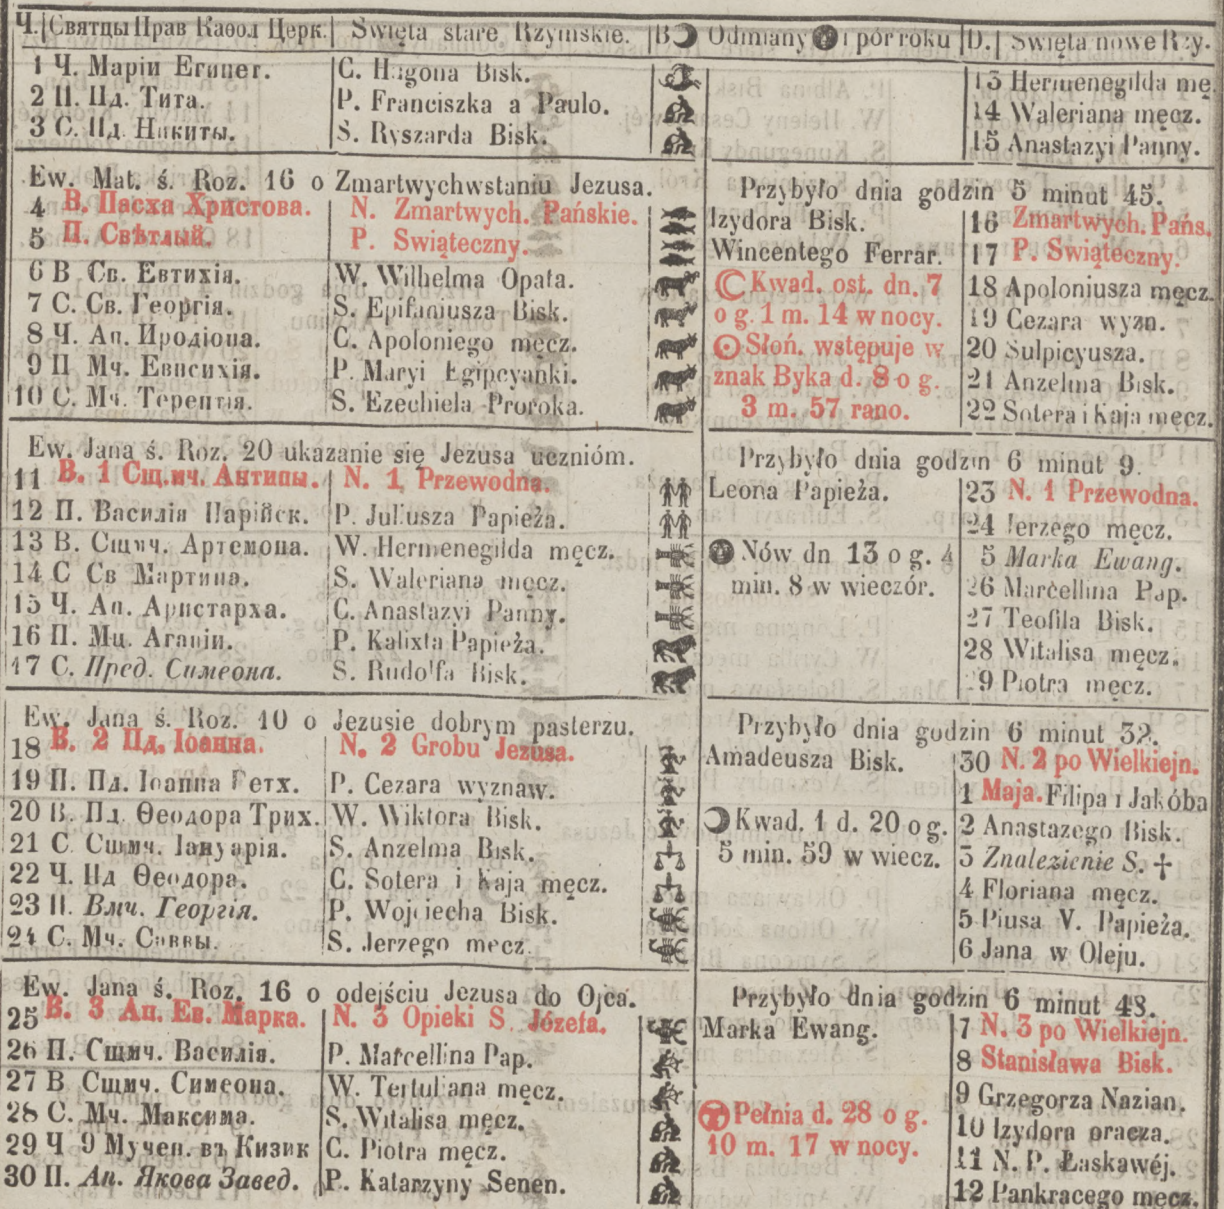 Ч. Святцы Прав Каѳол Церк. Święta stare Rzymskie. B☽ Odmiany i pór roku D. Święta nowe Rzy.
1 Ч. Маріи Егинет. C. Hugona Bisk. 13 Hermenegilda mę
2 П. Пд. Тита. P. Franciszka a Paulo. 14 Waleriana męcz.
3 С. Пд. Никиты. S. Ryszarda Bisk. 15 Anastazyi Panny.
Ew. Mat. ś. Roz. 16 o Zmartwychwstaniu Jezusa. Przybyło dnia godzin 5 minut 45.
4 В. Пасха Христова. N. Zmartwych. Pańskie. Izydora Bisk. 16 Zmartwych. Pańs.
5 П. Свѣтлый. P. Swiąteczny. Wincentego Ferrar. 17 P. Swiąteczny.
6 В Св. Евтихія. W. Wilhelma Opata. ☾ Kwad. ost. dn. 7 18 Apoloniusza męcz.
7 С. Св. Георгія. S. Epifaniusza Bisk. o g. 1 m. 14 w nocy. 19 Cezara wyzn.
8 Ч. Ап. Иродіона. C. Apoloniego męcz. ☉ Słoń. wstępuje w 20 Sulpicyusza.
9 П Мч. Евпсихія. P. Maryi Egipcyanki. znak Byka d. 8 o g. 21 Anzelma Bisk.
10 С. Мч. Терентія. S. Ezechiela Proroka. 3 m. 57 rano. 22 Sotera i Kaja męcz.
Ew. Jana ś. Roz. 20 ukazanie się Jezusa uczniόm. Przybyło dnia godzin 6 minut 9.
11 В. 1 Сщ.мч. Антипы. N. 1 Przewodna. Leona Papieża. 23 N. 1 Przewodna.
12 П. Василія Парійск. P. Juliusza Papieża. 24 Jerzego męcz.
13 В. Сщмч. Артемона. W. Hermenegilda męcz. Nów dn 13 o g. 4 5 Marka Ewang.
14 С Св Мартина. S. Waleriana męcz. min. 8 w wieczór. 26 Marcellina Pap.
15 Ч. Ап. Аристарха. C. Anastazyi Panny. 27 Teofila Bisk.
16 П. Мц. Агапіи. P. Kalixta Papieża. 28 Witalisa męcz.
17 С. Пред. Симеона. S. Rudolfa Bisk. 29 Piotra męcz.
Ew. Jana ś. Roz. 10 o Jezusie dobrym pasterzu. Przybyło dnia godzin 6 minut 32.
18 В. 2 Пд. Іоанна. N. 2 Grobu Jezusa. Amadeusza Bisk. 30 N. 2 po Wielkiejn.
19 П. Пд. Іоанна Ветх. P. Cezara wyznaw. 1 Maja. Filipa i Jakóba
20 В. Пд. Ѳеодора Трих. W. Wiktora Bisk. ☽ Kwad. 1 d. 20 o g. 2 Anastazego Bisk.
21 С. Сщмч. Іануарія. S. Anzelma Bisk. 5 min. 59 w wiecz. 3 Znalezienie S. ✝
22 Ч. Пд Ѳеодора. C. Sotera i Kaja męcz. 4 Floriana męcz.
23 П. Вмч. Георгія. P. Wojciecha Bisk. 5 Piusa V. Papieża.
24 С. Мч. Саввы. S. Jerzego męcz. 6 Jana w Oleju.
Ew. Jana ś. Roz. 16 o odejściu Jezusa do Ojca. Przybyło dnia godzin 6 minut 48.
25 В. 3 Ап. Ев. Марка. N. 3 Opieki S. Józefa. Marka Ewang. 7 N. 3 po Wielkiejn.
26 П. Сщмч. Василія. P. Marcellina Pap. 8 Stanisława Bisk.
27 В Сщмч. Симеона. W. Tertuliana męcz. 9 Grzegorza Nazian.
28 С. Мч. Максима. S. Witalisa męcz. Pełnia d. 28 o g. 10 Izydora oracza.
29 Ч 9 Мучен. въ Кизик C. Piotra męcz. 10 m. 17 w nocy. 11 N. P. Łaskawéj.
30 П. Ап. Якова Завед. P. Katarzyny Senen. 12 Pankracego męcz.